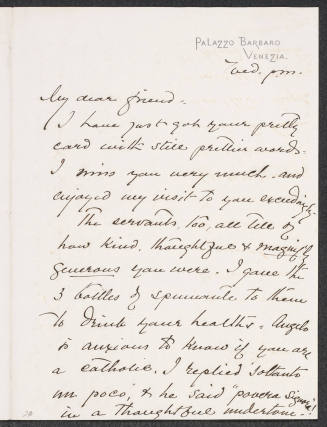 PALAZZO BARBARO
VENEZIA.
Wed. p.m.
My dear friend -
I have just got your pretty
card with still prettier words.
I miss you very much - and
enjoyed my visit to you exceedingly.
The servants too, all tell of
how kind, thoughtful & magnifly
generous you were. I gave the
3 bottles of spumante to them
to drink your healths - Angelo
is anxious to know if you are
a catholic. I replied soltanto
un poco, & he said "povera signora"!
in a thoughtful undertone -